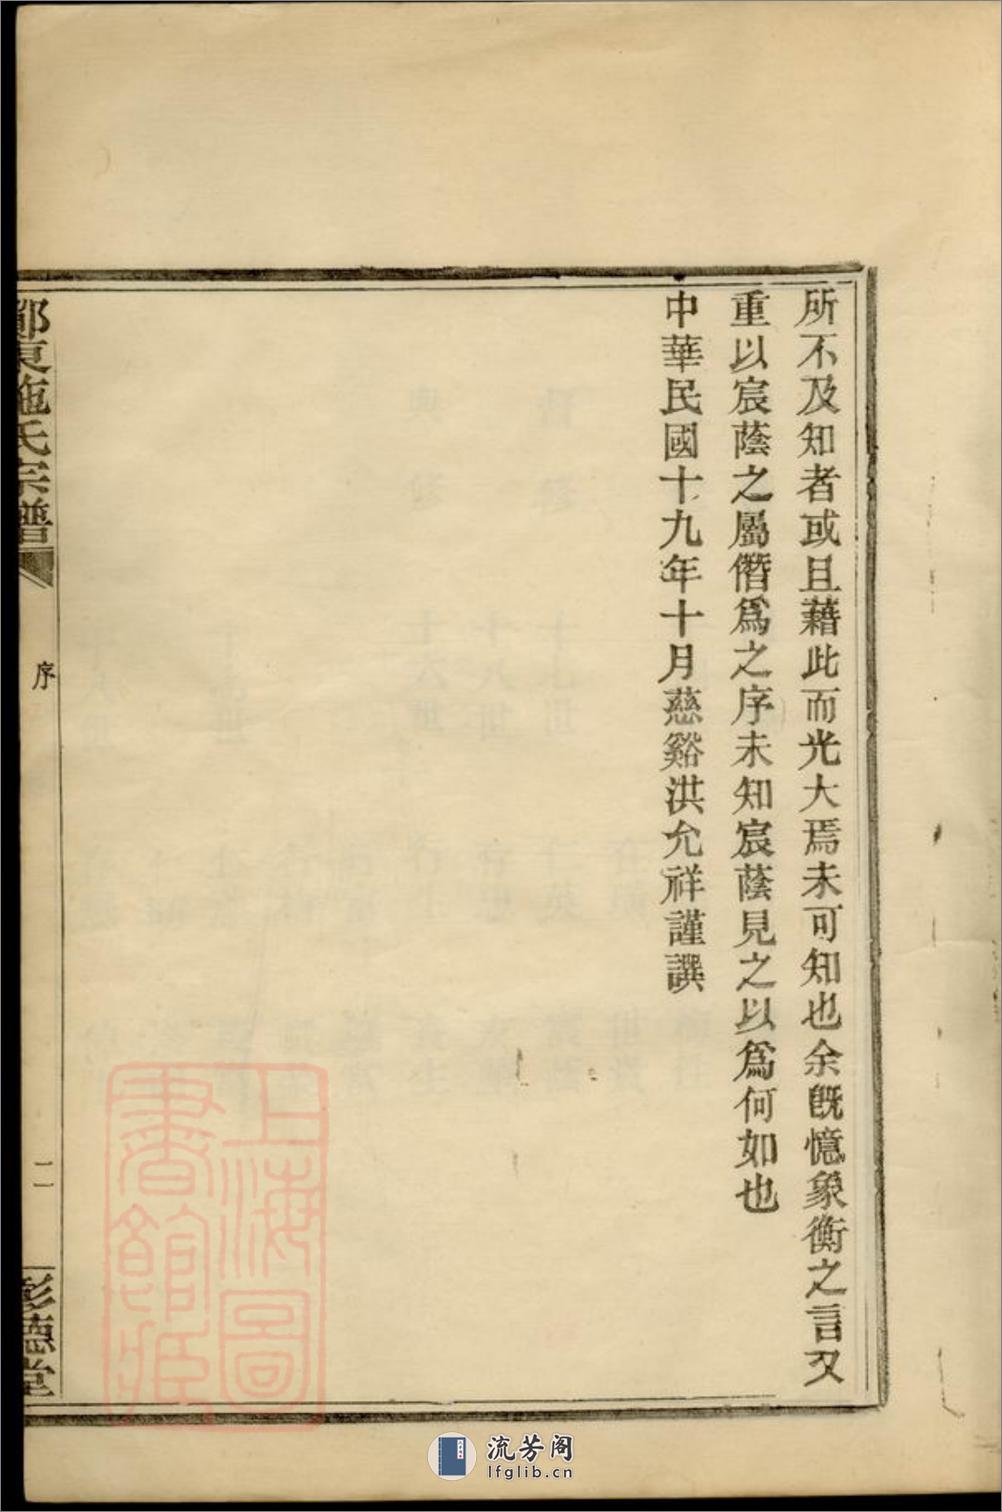 所不及知者或且藉此而光大焉未可知也余旣憶象衡之言又
重以宸蔭之屬僭爲之序未知宸蔭見之以爲何如也
中華民國十九年十月慈谿洪允祥謹譔
鄮東施氏宗譜
序
二
彰德堂
上海圖
書館藏
流芳阁
lfglib.cn